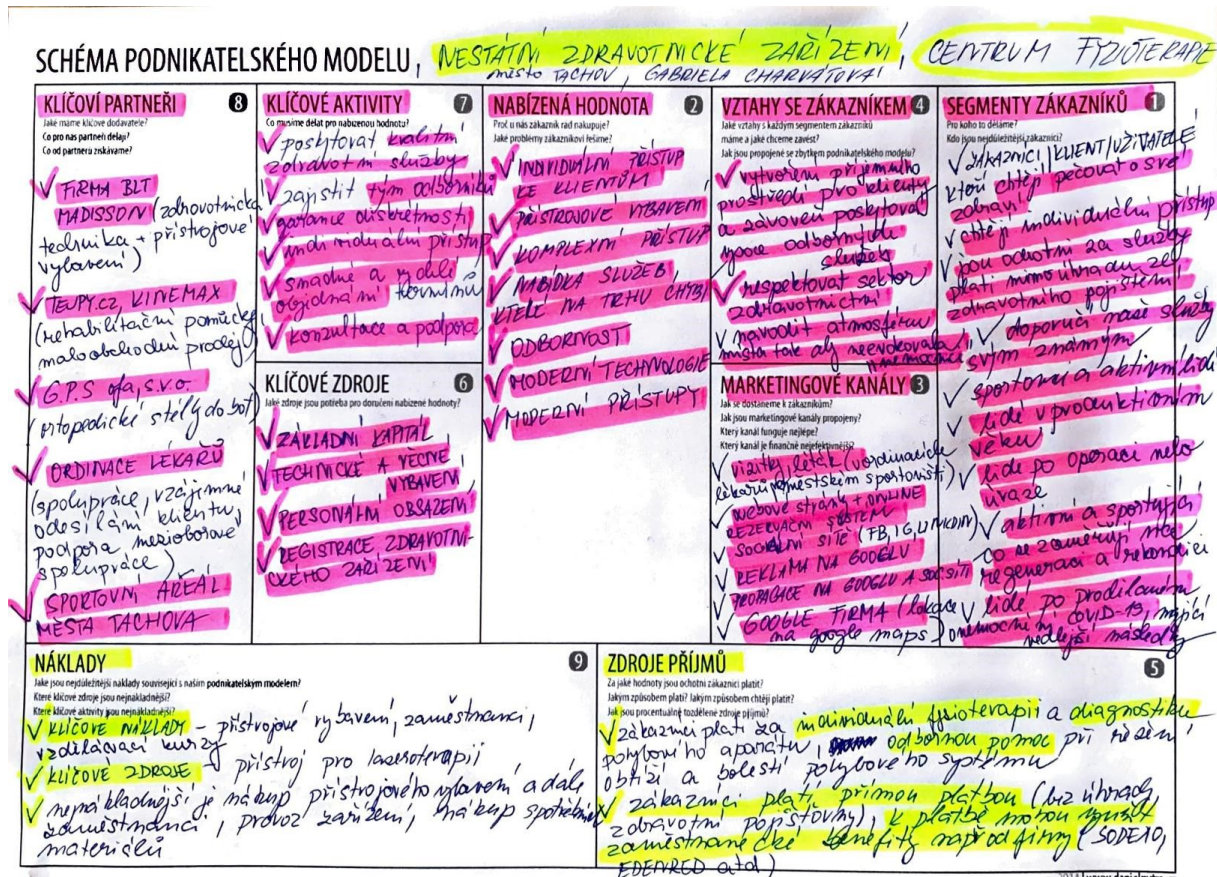 SCHÉMA PODNIKATELSKÉHO MODELU, NESTÁTNÍ ZDRAVOTNICKÉ ZAŘÍZENÍ, CENTRUM FYZIOTERAPIE
město TACHOV, GABRIELA CHARVÁTOVÁ
KLÍČOVÍ PARTNEŘI 8
Jaké máme klíčové dodavatele?
Co pro nás partneři dělají?
Co od partnerů získáváme?
✓ FIRMA BLT
MADISSON (zdravotnická
technika + přístrojové
vybavení)
✓ TEUPY.CZ, KINEMAX
(rehabilitační pomůcky
maloobchodní prodej)
✓ G.P.S ofa, s.r.o.
(ortopedické stélky do bot)
✓ ORDINACE LÉKAŘŮ
(spolupráce, vzájemné
odesílání klientů,
podpora mezioborové
spolupráce)
✓ SPORTOVNÍ AREÁL
MĚSTA TACHOVA
KLÍČOVÉ AKTIVITY 7
Co musíme dělat pro nabízenou hodnotu?
✓ poskytovat kvalitní
zdravotní služby
✓ zajistit tým odborníků
✓ garance diskrétnosti
✓ individuální přístup
✓ snadné a rychlé
objednání termínů
✓ konzultace a podpora
KLÍČOVÉ ZDROJE 6
Jaké zdroje jsou potřeba pro doručení nabízené hodnoty?
✓ ZÁKLADNÍ KAPITÁL
✓ TECHNICKÉ A VĚCNÉ
VYBAVENÍ
✓ PERSONÁLNÍ OBSAZENÍ
✓ REGISTRACE ZDRAVOTNI-
CKÉHO ZAŘÍZENÍ
NABÍZENÁ HODNOTA 2
Proč u nás zákazník rád nakupuje?
Jaké problémy zákazníkovi řešíme?
✓ INDIVIDUÁLNÍ PŘÍSTUP
KE KLIENTŮM
✓ PŘÍSTROJOVÉ VYBAVENÍ
✓ KOMPLEXNÍ PŘÍSTUP
✓ NABÍDKA SLUŽEB
KTERÉ NA TRHU CHYBÍ
✓ ODBORNOST
✓ MODERNÍ TECHNOLOGIE
✓ MODERNÍ PŘÍSTUPY
VZTAHY SE ZÁKAZNÍKEM 4
Jaké vztahy s každým segmentem zákazníků
máme a jaké chceme zavést?
Jak jsou propojené se zbytkem podnikatelského modelu?
✓ vytvoření příjemného
prostředí pro klienty
a zároveň poskytovat
vysoce odborných
služeb
✓ respektovat sektor
zdravotnictví
✓ navodit atmosféru
místa tak aby neevokovala
nemocnici
MARKETINGOVÉ KANÁLY 3
Jak se dostaneme k zákazníkům?
Jak jsou marketingové kanály propojeny?
Který kanál funguje nejlépe?
Který kanál je finančně nejefektivnější?
✓ vizitky, leták (v ordinacích
lékařů, městském sportovišti)
✓ webové stránky + ONLINE
REZERVAČNÍ SYSTÉM
✓ SOCIÁLNÍ SÍTĚ (FB, IG, LINKDIN)
✓ REKLAMA NA GOOGLU
✓ PROPAGACE NA GOOGLU A SOC. SÍTI
✓ GOOGLE FIRMA (lokace
na google maps)
SEGMENTY ZÁKAZNÍKŮ 1
Pro koho to děláme?
Kdo jsou nejdůležitější zákazníci?
✓ ZÁKAZNÍCI / KLIENTI / UŽIVATELÉ
kteří chtějí pečovat o své
zdraví
✓ chtějí individuální přístup
✓ jsou ochotni za služby
platit mimo úhradu ze
zdravotního pojištění
✓ doporučí naše služby
svým známým
✓ sportovci a aktivní lidé
✓ lidé v produktivním
věku
✓ lidé po operaci nebo
úraze
✓ aktivní a sportující
co se zaměřují více
regeneraci a rekondici
✓ lidé po prodělaném
onemocnění COVID-19, mající
vedlejší následky
NÁKLADY 9
Jaké jsou nejdůležitější náklady související s naším podnikatelským modelem?
Které klíčové zdroje jsou nejnákladnější?
Které klíčové aktivity jsou nejnákladnější?
✓ KLÍČOVÉ NÁKLADY – přístrojové vybavení, zaměstnanci,
vzdělávací kurzy
✓ KLÍČOVÉ ZDROJE – přístroj pro laseroterapii
✓ nejnákladnější je nákup přístrojového vybavení a dále
zaměstnanci, provoz zařízení, nákup spotřebních
materiálů
ZDROJE PŘÍJMŮ 5
Za jaké hodnoty jsou ochotni zákazníci platit?
Jakým způsobem platí? Jakým způsobem chtějí platit?
Jak jsou procentuálně rozdělené zdroje příjmů?
✓ zákazníci platí za individuální fyzioterapii a diagnostiku
pohybového aparátu, odbornou pomoc při řešení
obtíží a bolestí pohybového systému
✓ zákazníci platí přímou platbou (bez úhrady
zdravotní pojišťovny), k platbě mohou využít
zaměstnanecké benefity např od firmy (SODEXO,
EDENRED atd)